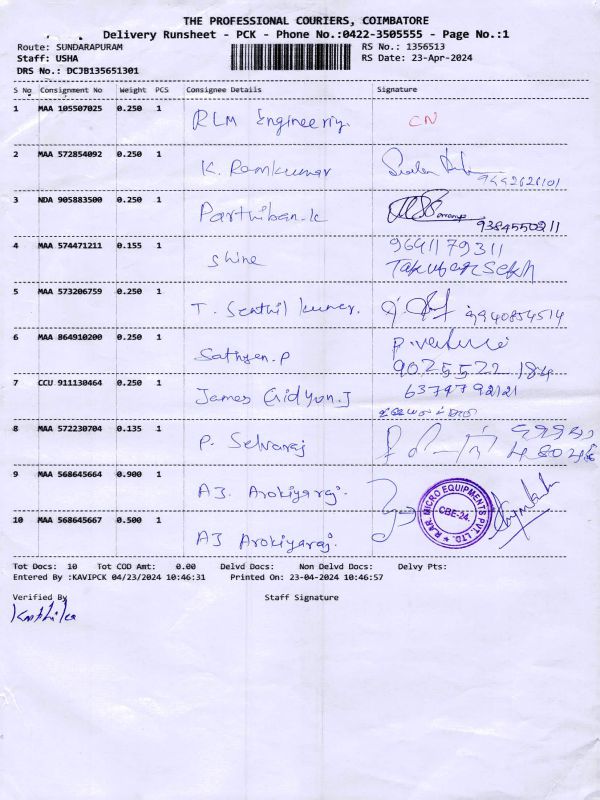 THE PROFESSIONAL COURIERS, COIMBATORE
Delivery Runsheet - PCK - Phone No.:0422-3505555 - Page No.:1
Route: SUNDARAPURAM RS No.: 1356513
Staff: USHA RS Date: 23-Apr-2024
DRS No.: DCJB135651301
S No Consignment No Weight PCS Consignee Details Signature
1 MAA 105507025 0.250 1 RLM Engineering. CN
2 MAA 572854092 0.250 1 K. Ramkumar 9442626101
3 NDA 905883500 0.250 1 Parthiban.k 9384550211
4 MAA 574471211 0.155 1 Shine 9641179311
5 MAA 573206759 0.250 1 T. Senthil kumar. 9940854514
6 MAA 864910200 0.250 1 Sathyan.p 9025522184
7 CCU 911130464 0.250 1 James Gidyon.J 6374792121
8 MAA 572230704 0.135 1 P. Selvaraj
9 MAA 568645664 0.900 1 AJ. Arokiyaraj.
R.AR MICRO EQUIPMENTS PVT. LTD.
CBE-24.
10 MAA 568645667 0.500 1 AJ Arokiyaraj.
Tot Docs: 10 Tot COD Amt: 0.00 Delvd Docs: Non Delvd Docs: Delvy Pts:
Entered By :KAVIPCK 04/23/2024 10:46:31 Printed On: 23-04-2024 10:46:57
Verified By Staff Signature